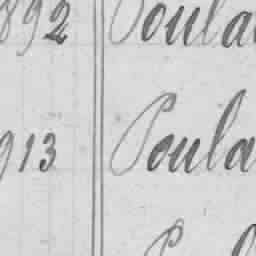 892 Poula
913 Poula